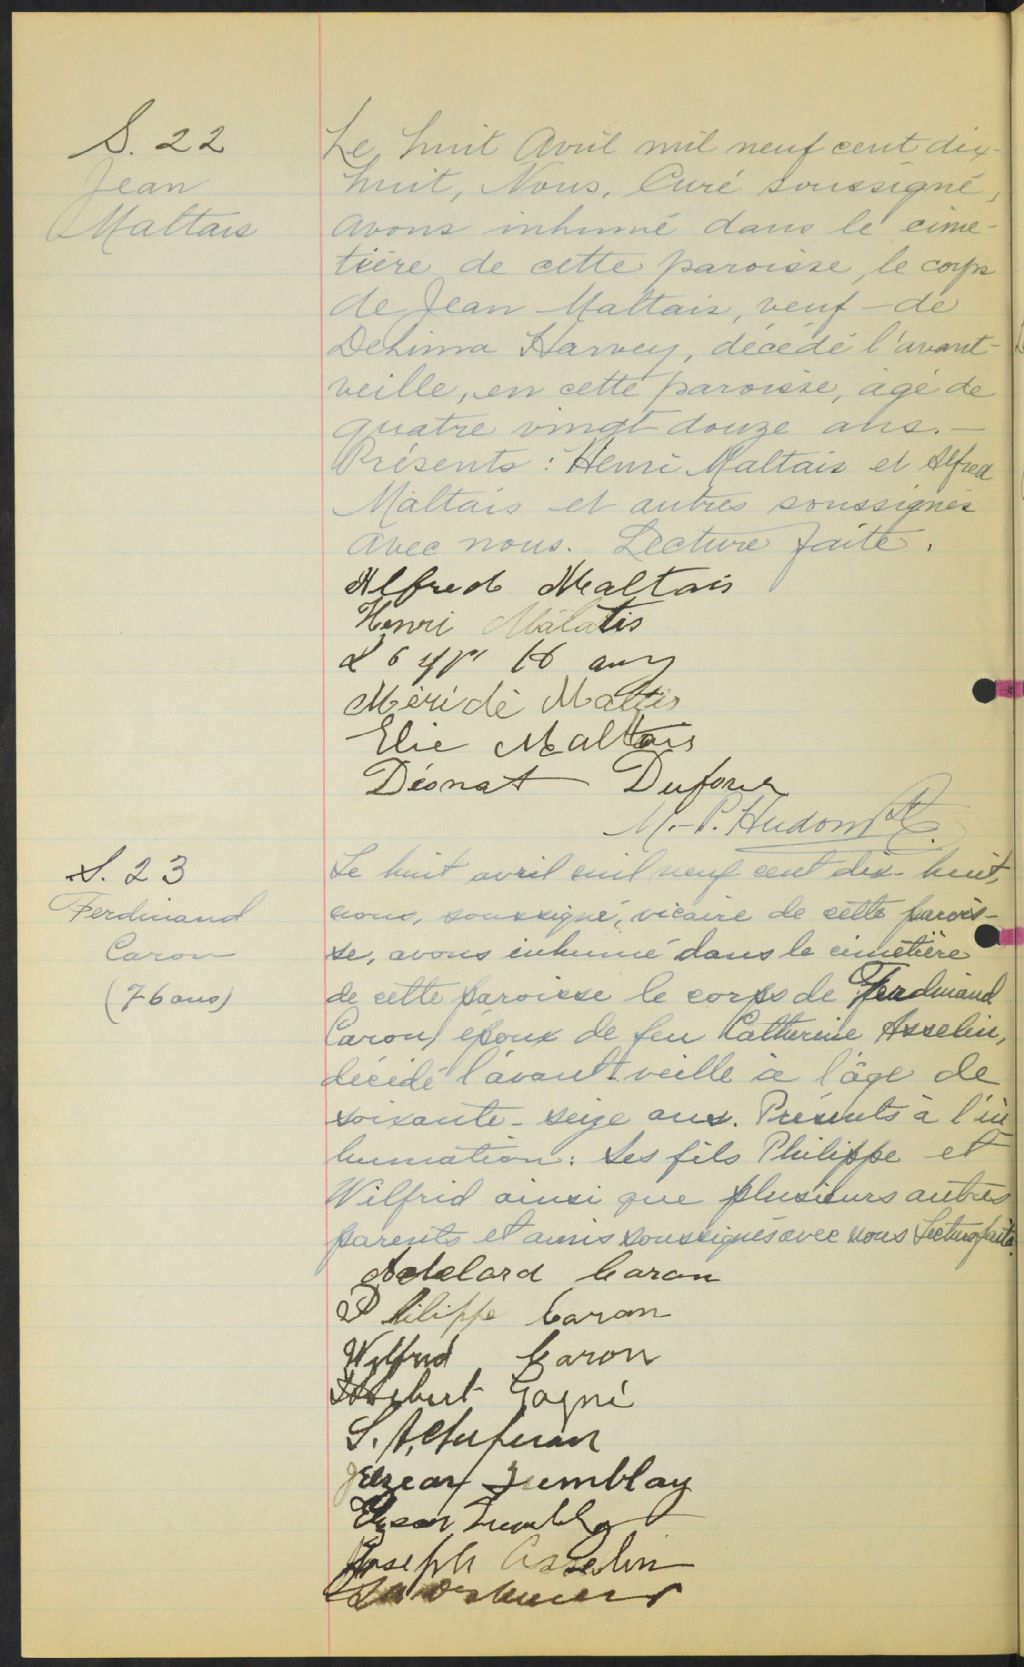 S. 22
Jean
Maltais
Le huit Avril mil neuf cent dix-
huit, Nous, Curé soussigné,
avons inhumé dans le cime-
tière de cette paroisse, le corps
de Jean Maltais, veuf de
Delima Harvey, décédé l'avant-
veille, en cette paroisse, âgé de
quatre vingt douze ans. —
Présents : Henri Maltais et Alfred
Maltais et autres soussignés
avec nous. Lecture faite.
Alfred Maltais
Henri
Méridé
Elie Maltais
Déonat Dufour
M.-P. Hudon Ptre
S. 23
Ferdinand
Caron
(76 ans)
Le huit avril mil neuf cent dix-huit,
nous, soussigné, vicaire de cette parois-
se, avons inhumé dans le cimetière
de cette paroisse le corps de Ferdinand
Caron, époux de feu Catherine Asselin,
décédé l'avant-veille à l'âge de
soixante-seize ans. Présents à l'in
humation: Ses fils Philippe et
Wilfrid ainsi que plusieurs autres
parents et amis soussignés avec nous Lecture faite.
Adelard Caron
Philippe Caron
Wilfrid Caron
Gagné
Tremblay
Joseph Asselin